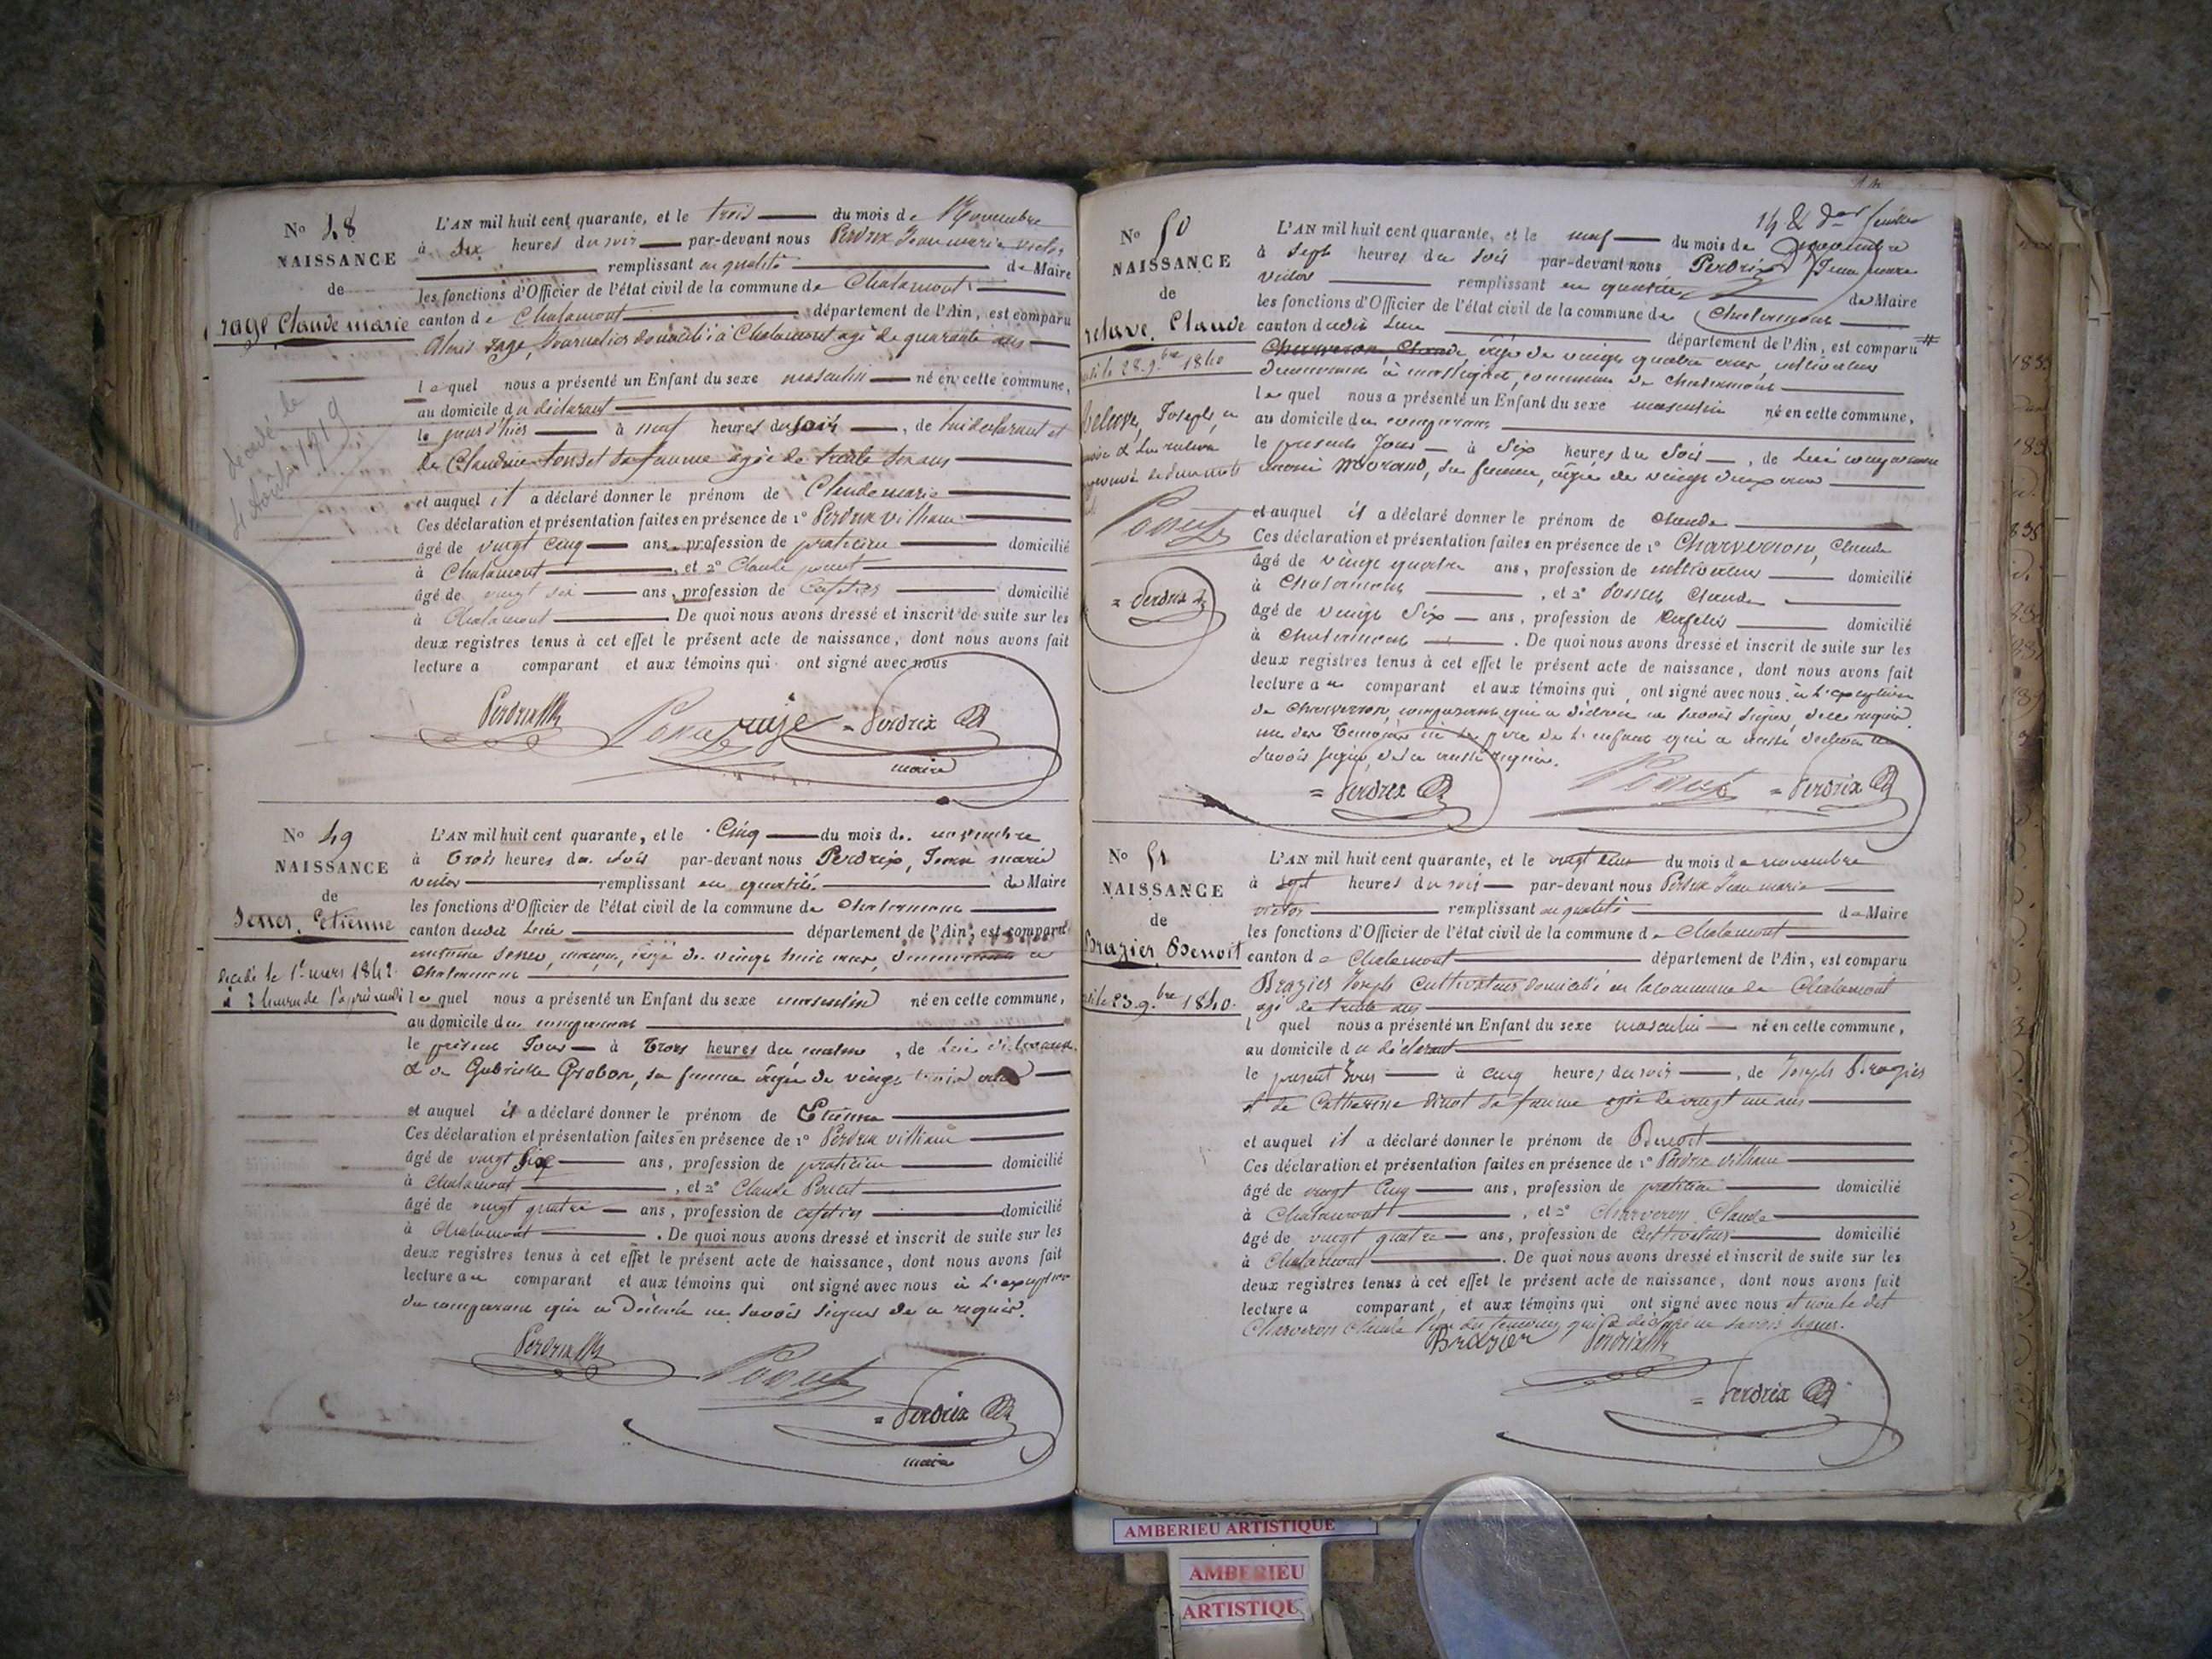 N° 48
NAISSANCE
de
rage Claude marie
décédé le
4 Août 1919
L'AN mil huit cent quarante, et le trois du mois de Novembre
à six heures du soir par-devant nous Perdrix Jean marie victor
remplissant en qualité de Maire
les fonctions d'Officier de l'état civil de la commune de Chalamont
canton de Chalamont département de l'Ain, est comparu
rage, Journalier domicilié à Chalamont agé de quarante ans
lequel nous a présenté un Enfant du sexe masculin né en cette commune,
au domicile du déclarant
le jour d'hier à neuf heures du soir, de lui déclarant et
de Claudine sa femme agée de trente ans
et auquel il a déclaré donner le prénom de Claude marie
Ces déclaration et présentation faites en présence de 1° Perdrix
âgé de vingt cinq ans, profession de praticien domicilié
à Chalamont, et 2° Claude
âgé de vingt six ans, profession de Cafetier domicilié
à Chalamont De quoi nous avons dressé et inscrit de suite sur les
deux registres tenus à cet effet le présent acte de naissance, dont nous avons fait
lecture a comparant et aux témoins qui ont signé avec nous
Perdrix rage Perdrix
maire
N° 49
NAISSANCE
de
Etienne
décédé le 1er mars 1842
L'AN mil huit cent quarante, et le Cinq du mois de novembre
à Trois heures du soir par-devant nous Perdrix, Jean marie
victor remplissant en qualité de Maire
les fonctions d'Officier de l'état civil de la commune de Chalamont
canton dudit lieu département de l'Ain, est comparu
agé de vingt huit ans,
Chalamont
lequel nous a présenté un Enfant du sexe masculin né en cette commune,
au domicile du comparant
le présent Jour à Trois heures du matin, de lui déclarant
& de Gabrielle Grobon, sa femme âgée de vingt
et auquel il a déclaré donner le prénom de Etienne
Ces déclaration et présentation faites en présence de 1° Perdrix
âgé de vingt six ans, profession de praticien domicilié
à Chalamont, et 2° Claude
âgé de vingt quatre ans, profession de cafetier domicilié
à Chalamont. De quoi nous avons dressé et inscrit de suite sur les
deux registres tenus à cet effet le présent acte de naissance, dont nous avons fait
lecture au comparant et aux témoins qui ont signé avec nous à l'exception
du comparant qui a Déclaré ne savoir signer de ce requis.
Perdrix
Perdrix
maire
14 & der feuillet
N° 50
NAISSANCE
de
Claude
le 28 9bre 1840
Joseph
Perdrix
L'AN mil huit cent quarante, et le neuf du mois de novembre
à Sept heures du soir par-devant nous Perdrix Jean marie
victor remplissant en qualité de Maire
les fonctions d'Officier de l'état civil de la commune de Chalamont
canton dudit Lieu département de l'Ain, est comparu
Charveron Claude, âgé de vingt quatre ans, cultivateur
à commune de Chalamont
lequel nous a présenté un Enfant du sexe masculin né en cette commune,
au domicile du comparant
le présent Jour à Six heures du Soir, de lui comparant
marie Morand, sa femme, âgée de vingt deux ans
et auquel il a déclaré donner le prénom de Claude
Ces déclaration et présentation faites en présence de 1° Charveron, Claude
âgé de vingt quatre ans, profession de cultivateur domicilié
à Chalamont, et 2° Claude
âgé de vingt Six ans, profession de Cafetier domicilié
à Chalamont. De quoi nous avons dressé et inscrit de suite sur les
deux registres tenus à cet effet le présent acte de naissance, dont nous avons fait
lecture au comparant et aux témoins qui ont signé avec nous à l'exception
de Charveron, comparant qui a déclaré ne savoir signer, de ce requis
de l'enfant qui a aussi déclaré ne
savoir signer, de ce aussi requis.
Perdrix Perdrix
N° 51
NAISSANCE
de
Brazier Benoit
le 23 9bre 1840
L'AN mil huit cent quarante, et le vingt du mois de novembre
à sept heures du soir par-devant nous Perdrix Jean marie
victor remplissant en qualité de Maire
les fonctions d'Officier de l'état civil de la commune de Chalamont
canton de Chalamont département de l'Ain, est comparu
Brazier Joseph Cultivateur domicilié en la commune de Chalamont
agé de trente ans
l quel nous a présenté un Enfant du sexe masculin né en cette commune,
au domicile du déclarant
le présent Jour à cinq heures du soir, de Joseph Brazier
et de Catherine sa femme agée de vingt un ans
et auquel il a déclaré donner le prénom de Benoit
Ces déclaration et présentation faites en présence de 1° Perdrix
âgé de vingt Cinq ans, profession de praticien domicilié
à Chalamont, et 2° Charveron Claude
âgé de vingt quatre ans, profession de Cultivateur domicilié
à Chalamont. De quoi nous avons dressé et inscrit de suite sur les
deux registres tenus à cet effet le présent acte de naissance, dont nous avons fait
lecture a comparant, et aux témoins qui ont signé avec nous et non le dit
Charveron Claude l'un des témoins qui a déclaré ne savoir signer.
Brasier Perdrix
Perdrix
AMBERIEU ARTISTIQUE
AMBERIEU
ARTISTIQU